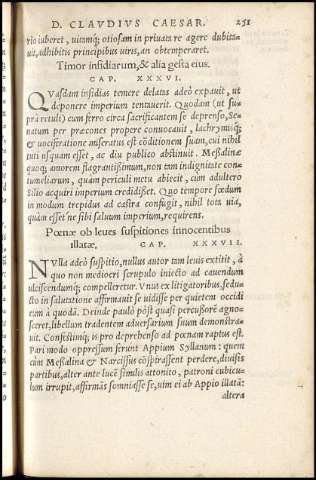 D. CLAVDIVS CAESAR. 251
rio iuberet, uitamq; otiosam in priuata re agere: dubita-
uit, adhibitis principibus uiris, an obtemperaret.
Timor insidiarum, & alia gesta eius.
CAP. XXXVI.
QVasdam insidias temere delatas adeò expauit, ut
deponere imperium tentauerit. Quodam (ut su-
prà retuli) cum ferro circa sacrificantem se deprenso, Se-
natum per præcones propere conuocauit, lachrymisq;
& uociferatione miseratus est cõditionem suam, cui nihil
tuti usquam esset, ac diu publico abstinuit. Messalinæ
quoq; amorem flagrãtissimum, non tam indignitate con-
tumeliarum, quàm periculi metu abiecit, cùm adultero
Silio acquiri imperium credidisset. Quo tempore fœdum
in modum trepidus ad castra confugit, nihil tota uia,
quàm esset ne sibi saluum imperium, requirens.
Pœnæ ob leues suspitiones innocentibus
illatæ, CAP. XXXVII.
NVlla adeò suspitio, nullus autor tam leuis extitit, à
quo non mediocri scrupulo iniecto ad cauendum
ulciscendumq; compelleretur. Vnus ex litigatoribus, sedu-
cto in salutatione affirmauit se uidisse per quietem occidi
eum à quodã. Deinde paulò pòst quasi percussorẽ agno-
sceret, libellum tradentem aduersarium suum demonstra-
uit. Confestimq; is pro deprenso ad pœnam raptus est.
Pari modo oppressum ferunt Appium Syllanum: quem
cùm Messalina & Narcissus cõspirassent perdere, diuisis
partibus, alter ante lucẽ similis attonito, patroni cubicu-
lum irrupit, affirmãs somniasse se, uim ei ab Appio illatã:
altera